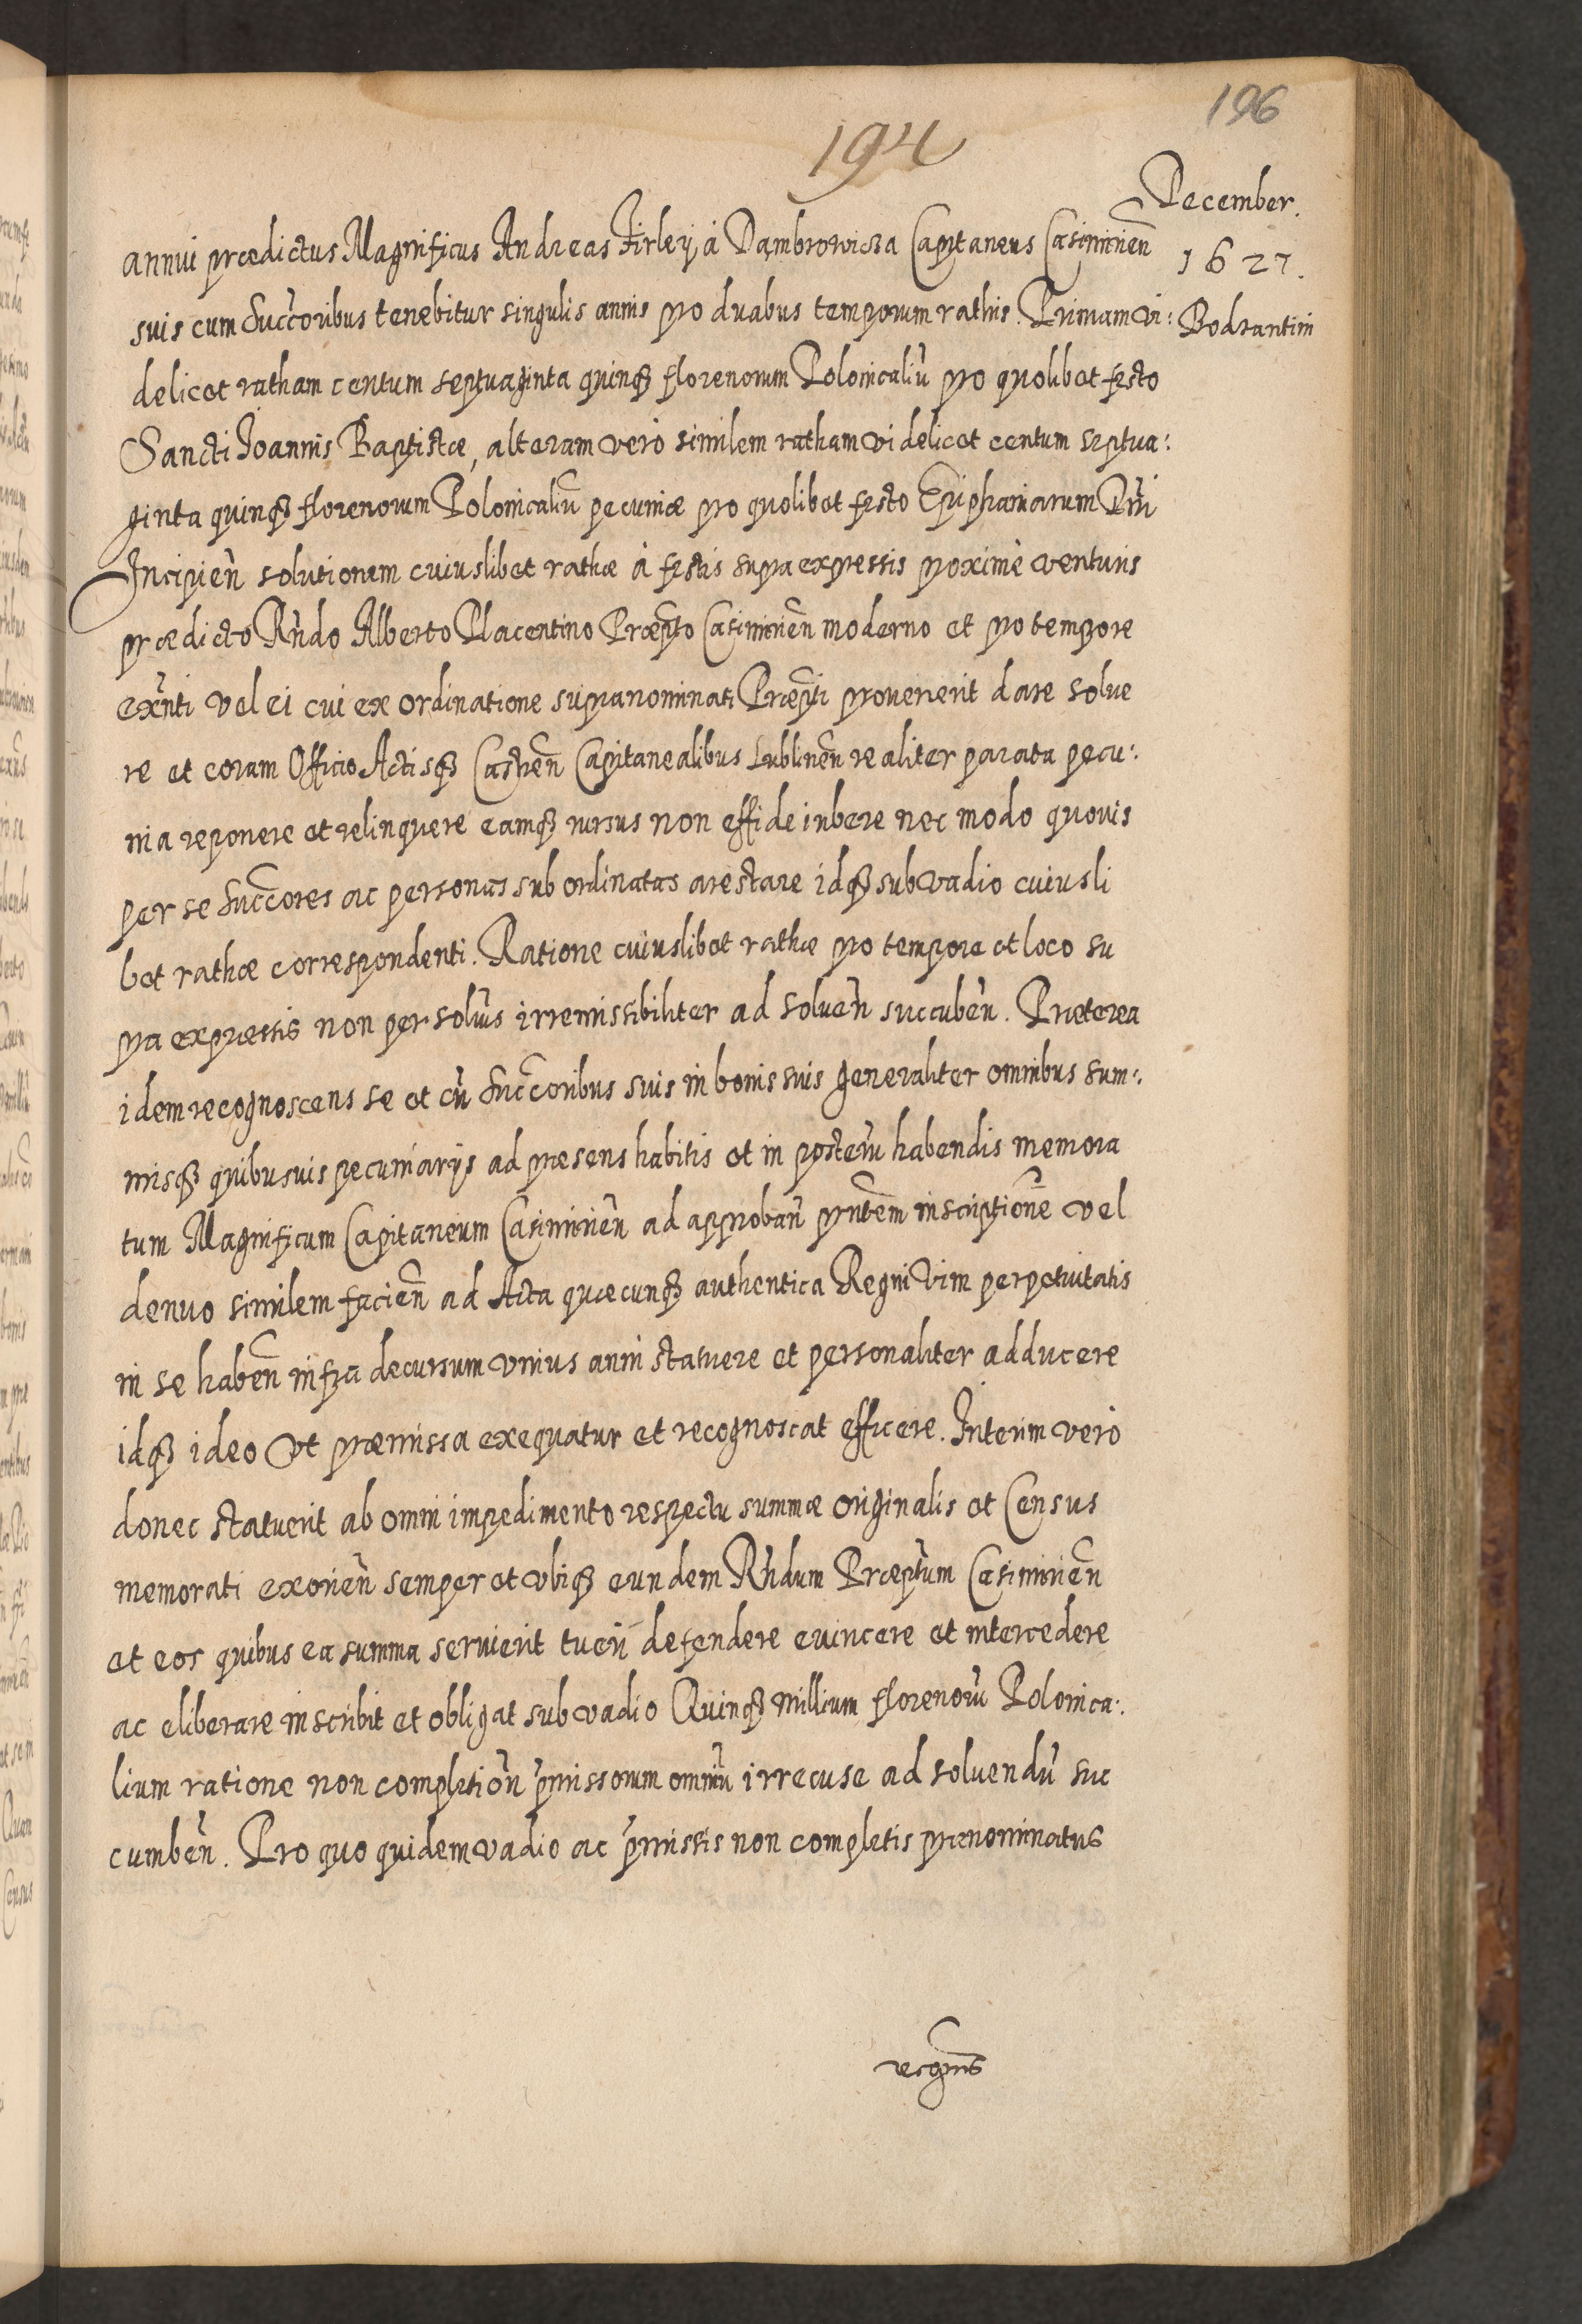 196
194
December.
1627.
Bodzantini
annui prædictus Magnificus Andreas Firley á Dąmbrowicza Capitaneus Casimirień
suis cum Succoribus tenebitur singulis annis pro duabus temporum rathis. Primam vi:
delicet ratham centum septuaginta quinqȝ florenorum Polonicaliũ pro quolibet festo
Sancti Joannis Baptistæ, alteram vero similem ratham videlicet centum septua:
ginta quinqȝ florenorum Polonicaliũ pecuniæ pro quolibet festo Epiphaniarum Dñi
Incipień solutionem cuiuslibet rathæ á festis supra expressis proximè venturis
prædicto Rńdo Alberto Placentino Præpto Casimirień moderno et pro tempore
exñti vel ei cui ex ordinatione supranominati Præpti provenerit dare solve
re et coram Officio Actisqȝ Castreń Capitanealibus Lublineń realiter parata pecu:
nia reponere et relinquere eamqȝ rursus non effide inbere nec modo quovis
per se Succores ac personas subordinatas arestare idqȝ sub vadio cuiusli
bet rathæ correspondenti. Ratione cuiuslibet rathæ pro tempore et loco su
pra expressis non persolũis irremissibiliter ad solveń succubeń. Præterea
idem recognoscens se et cũ Succoribus suis in bonis suis generaliter omnibus sum:
misqȝ quibusuis pecuniarijs ad præsens habitis et in posterũ habendis memora
tum Magnificum Capitaneum Casimirień ad approbań pñtem inscriptionẽ vel
denuo similem facień ad Acta quæcunqȝ authentica Regni vim perpetuitatis
in se habeń infra decursum vnius anni statuere et personaliter adducere
idqȝ ideo vt præmissa exequatur et recognoscat efficere. Interim verò
donec statuerit ab omni impedimento respectu summæ originalis et Census
memorati exorień semper et vbiqȝ eundem Rńdum Præptum Casimirień
et eos quibus ea summa servierit tueń defendere evincere et intercedere
ac eliberare inscribit et obligat sub vadio Quinqȝ millium florenorũ Polonica:
lium ratione non completioń p̃missorum omniũ irrecuse ad solvendũ suc
cumbeń. Pro quo quidem vadio ac p̃missis non completis prænominatus
recgnns